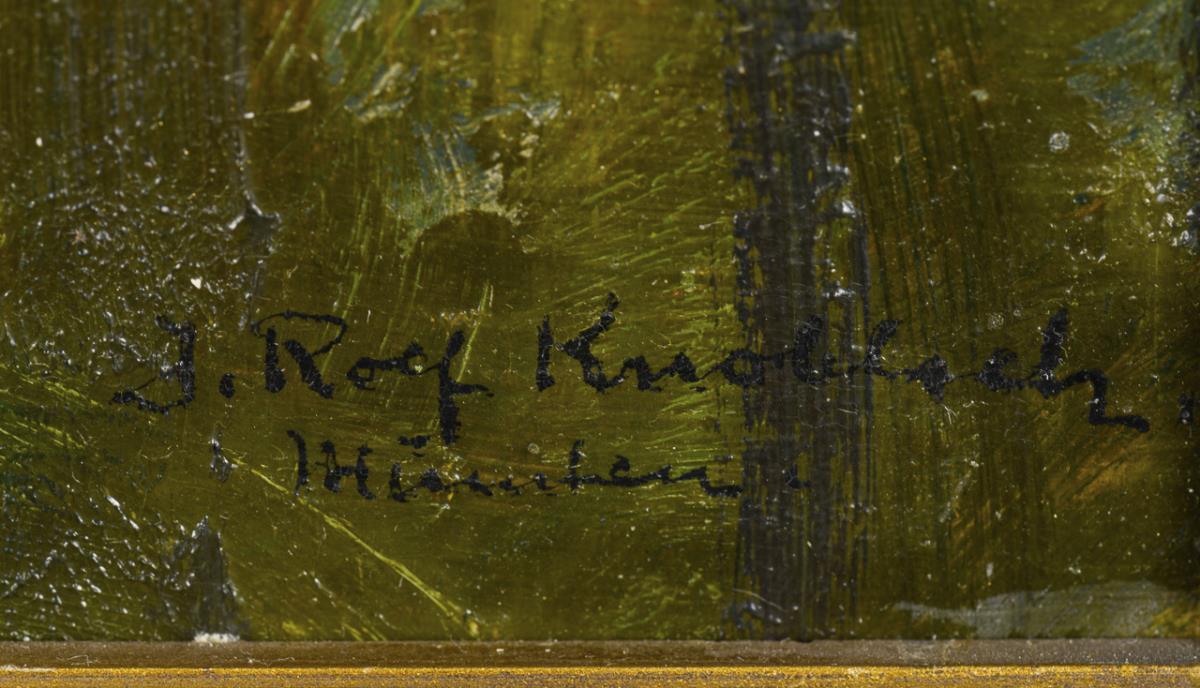 J. Rolf Knobloch
München.